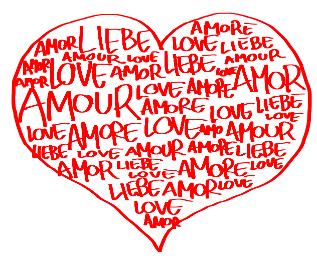 AMORE
AMOR LIEBE LOVE LIEBE
AMOR AMOUR LOVE LIEBE AMOUR
AMOR LOVE AMOR LOVE AMOR
AMOUR LOVE AMORE
AMORE LOVE LIEBE
LOVE AMORE LOVE AMO AMOUR LOVE
LIEBE LOVE AMOUR AMORE LIEBE
AMOR LIEBE LOVE AMORE LOVE
LIEBE AMOR LOVE
LOVE
AMOR